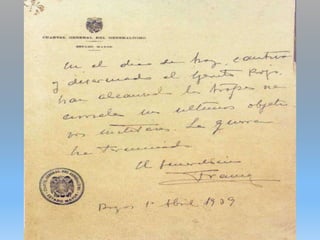 CUARTEL GENERAL DEL GENERALISIMO
ESTADO MAYOR
En el dia de hoy, cautivo
y desarmado el Ejercito rojo,
han alcanzado las tropas na
cionales sus ultimos objeti
vos militares. La guerra
ha terminado.
El Generalísimo
Franco
Burgos 1º Abril 1939
CUARTEL GENERAL DEL GENERALISIMO
ESTADO MAYOR